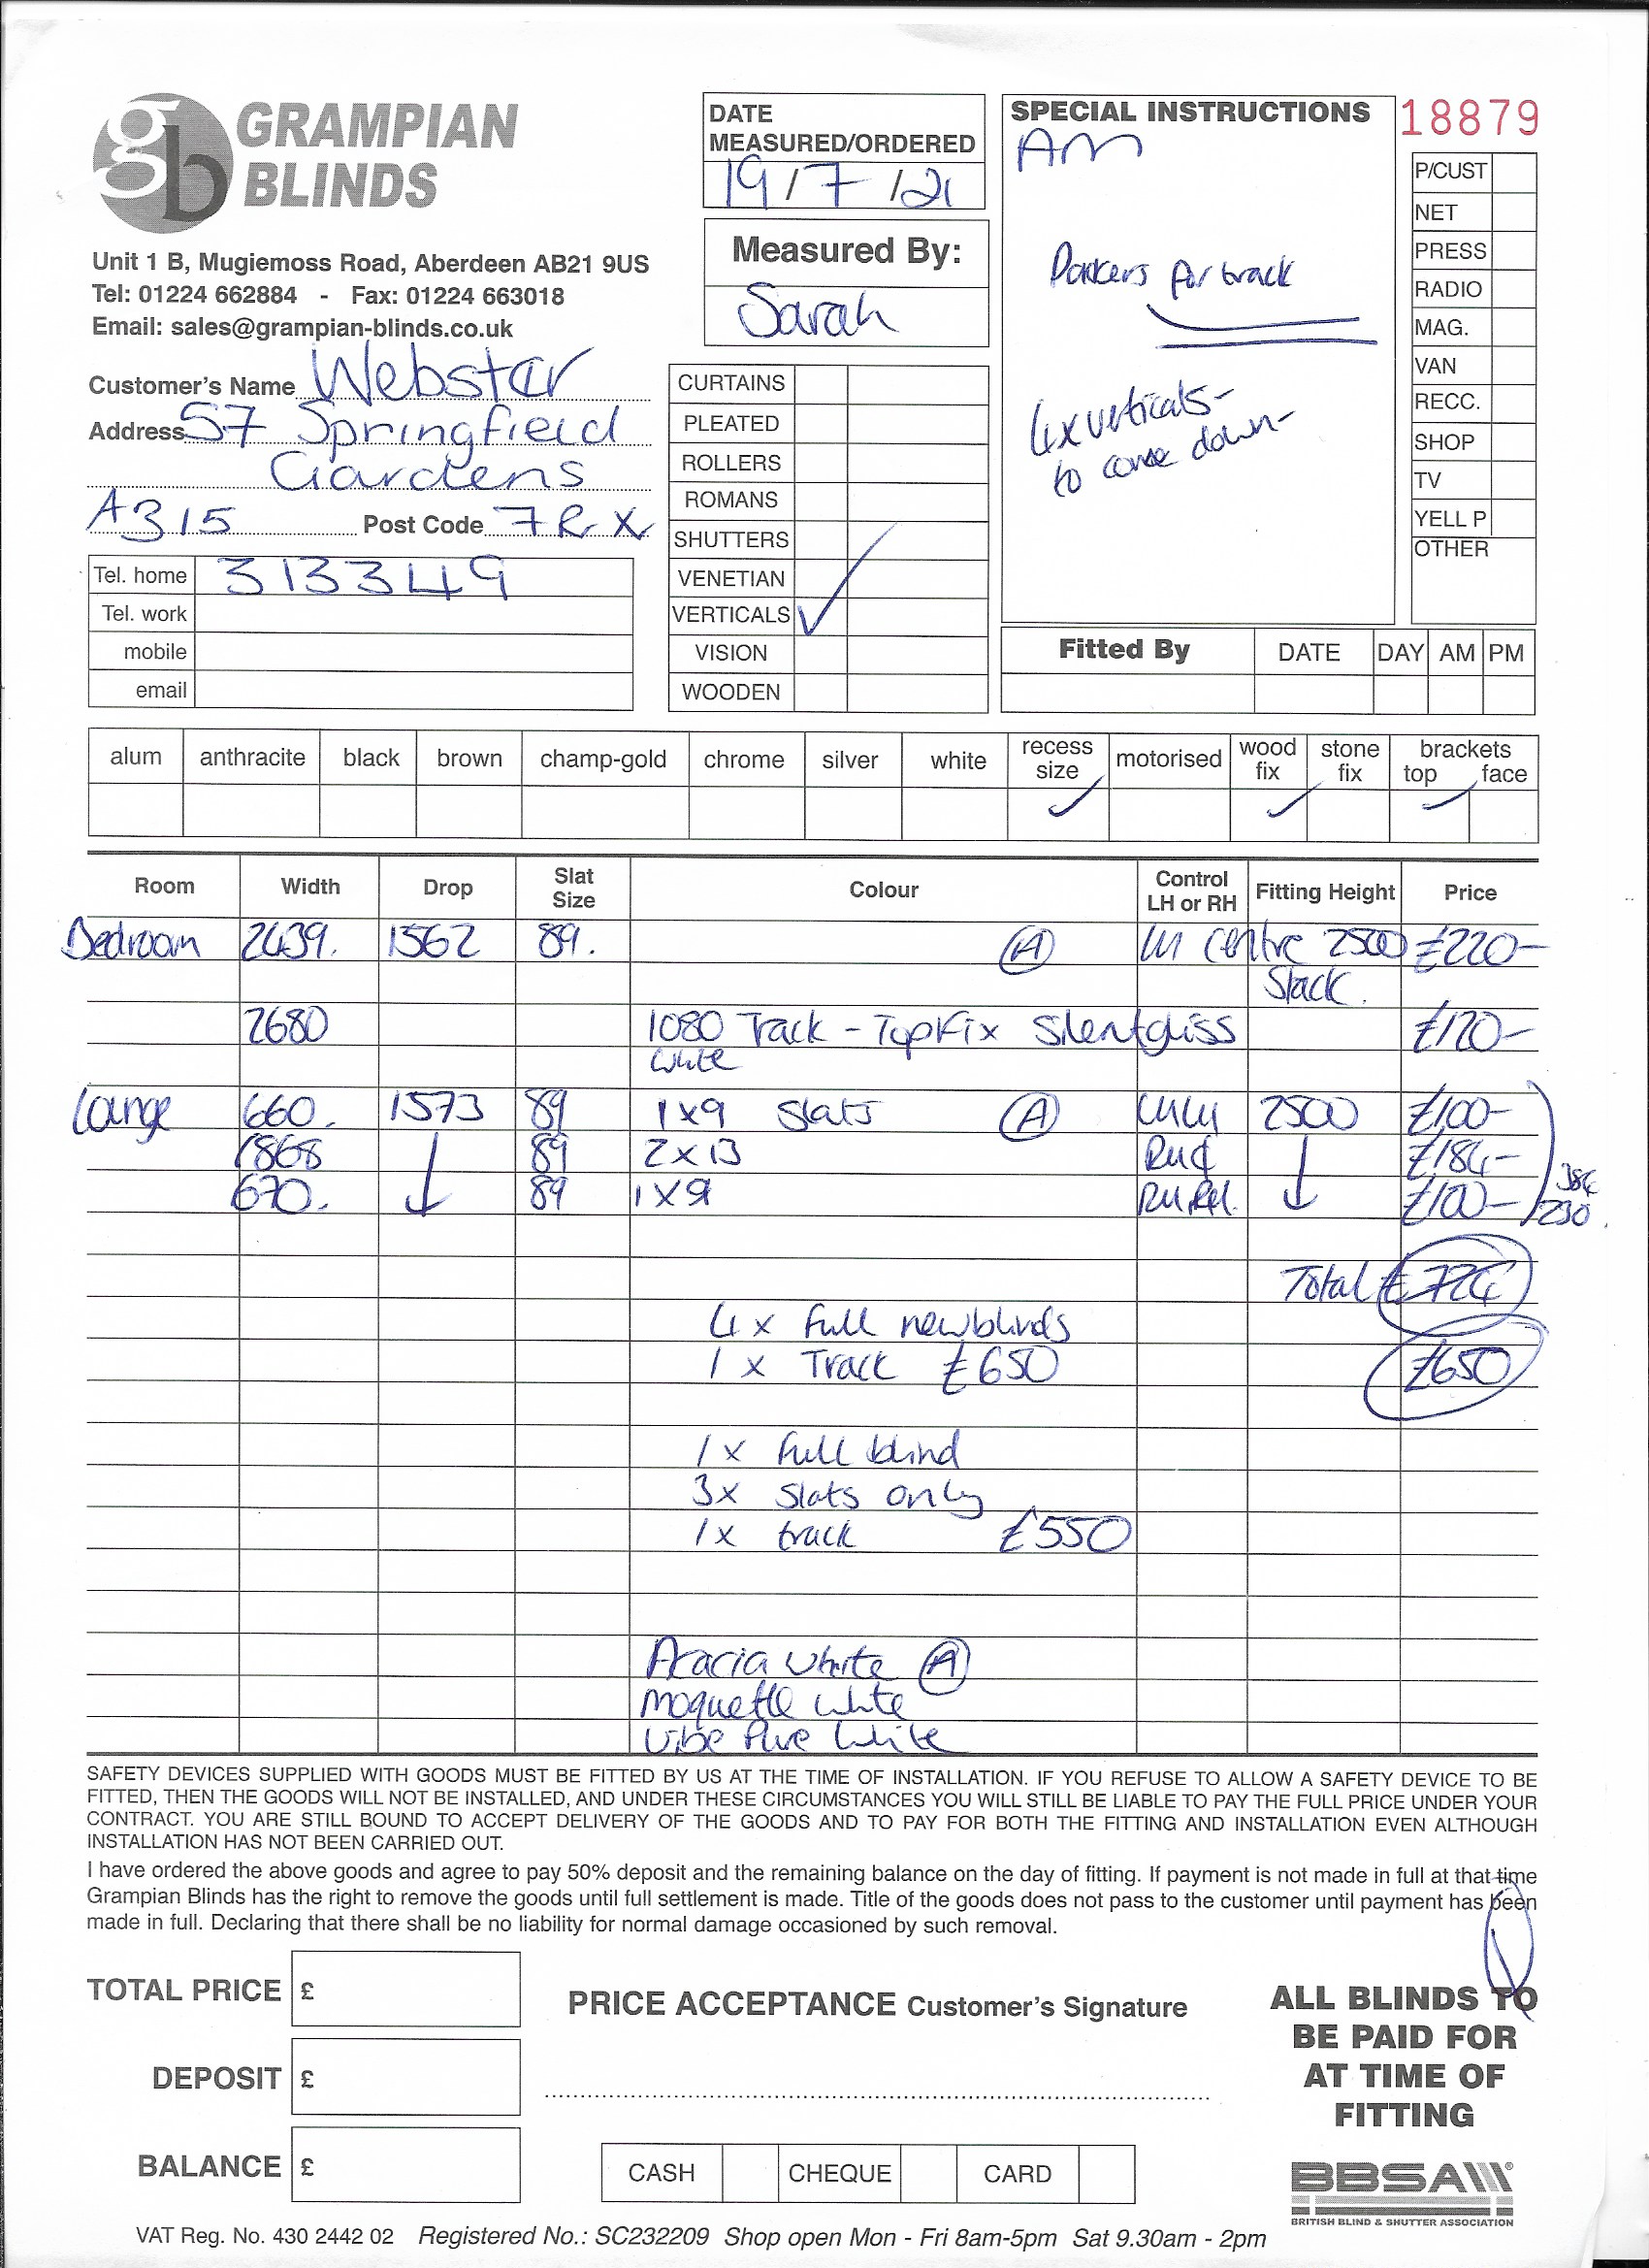 GRAMPIAN
BLINDS
Unit 1 B, Mugiemoss Road, Aberdeen AB21 9US
Tel: 01224 662884 - Fax: 01224 663018
Email: sales@grampian-blinds.co.uk
Customer's Name Webster
Address 57 Springfield
Gardens
AB15 Post Code 7RX
Tel. home 313349
Tel. work
mobile
email
DATE
MEASURED/ORDERED
19/7/21
Measured By:
Sarah
CURTAINS
PLEATED
ROLLERS
ROMANS
SHUTTERS
VENETIAN
VERTICALS ✓
VISION
WOODEN
SPECIAL INSTRUCTIONS
AM
for track
4x verticals-
to come down-
18879
P/CUST
NET
PRESS
RADIO
MAG.
VAN
RECC.
SHOP
TV
YELL P
OTHER
Fitted By DATE DAY AM PM
alum anthracite black brown champ-gold chrome silver white recess size motorised wood fix stone fix brackets top face
✓ ✓ ✓
Room Width Drop Slat Size Colour Control LH or RH Fitting Height Price
Bedroom 2439. 1562 89. (A) centre 2500 £220-
Stack.
2680 1080 Track - TopFix Silentgliss £120-
white
Lounge 660. 1573 89 1x9 Slats (A) LHLH 2500 £100-
1868 89 2x13 £184-
670. 89 1x9 RHRH. £100-
384
230.
Total £724
4x Full new blinds
1x Track £650 £650
1x Full blind
3x Slats only
1x track £550
Acacia White (A)
Moquette White
Vibe Pure White
SAFETY DEVICES SUPPLIED WITH GOODS MUST BE FITTED BY US AT THE TIME OF INSTALLATION. IF YOU REFUSE TO ALLOW A SAFETY DEVICE TO BE
FITTED, THEN THE GOODS WILL NOT BE INSTALLED, AND UNDER THESE CIRCUMSTANCES YOU WILL STILL BE LIABLE TO PAY THE FULL PRICE UNDER YOUR
CONTRACT. YOU ARE STILL BOUND TO ACCEPT DELIVERY OF THE GOODS AND TO PAY FOR BOTH THE FITTING AND INSTALLATION EVEN ALTHOUGH
INSTALLATION HAS NOT BEEN CARRIED OUT.
I have ordered the above goods and agree to pay 50% deposit and the remaining balance on the day of fitting. If payment is not made in full at that time
Grampian Blinds has the right to remove the goods until full settlement is made. Title of the goods does not pass to the customer until payment has been
made in full. Declaring that there shall be no liability for normal damage occasioned by such removal.
TOTAL PRICE £
DEPOSIT £
BALANCE £
PRICE ACCEPTANCE Customer's Signature
CASH CHEQUE CARD
ALL BLINDS TO
BE PAID FOR
AT TIME OF
FITTING
BBSA
BRITISH BLIND & SHUTTER ASSOCIATION
VAT Reg. No. 430 2442 02 Registered No.: SC232209 Shop open Mon - Fri 8am-5pm Sat 9.30am - 2pm